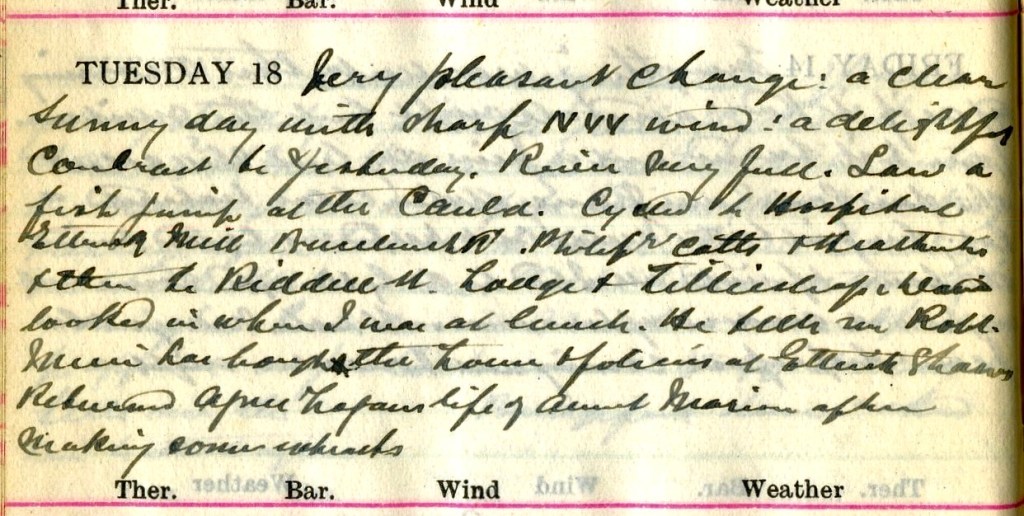 Ther. Bar. Wind Weather
TUESDAY 18 Very pleasant change: a clear
sunny day with sharp NW wind: a delightful
contrast to yesterday. River very full. Saw a
fish jump at the Cauld. Cycled to Hospital
Ettrick Mill Buccleuch Rd. Philip Cotts &
& then to Riddell St. Lodge &
looked in when I was at lunch. He tells me Robt.
Muir has bought the house & policies at Ettrick Shaws
Returned Agnes Logan's life of Aunt Marion after
making some extracts
Ther. Bar. Wind Weather